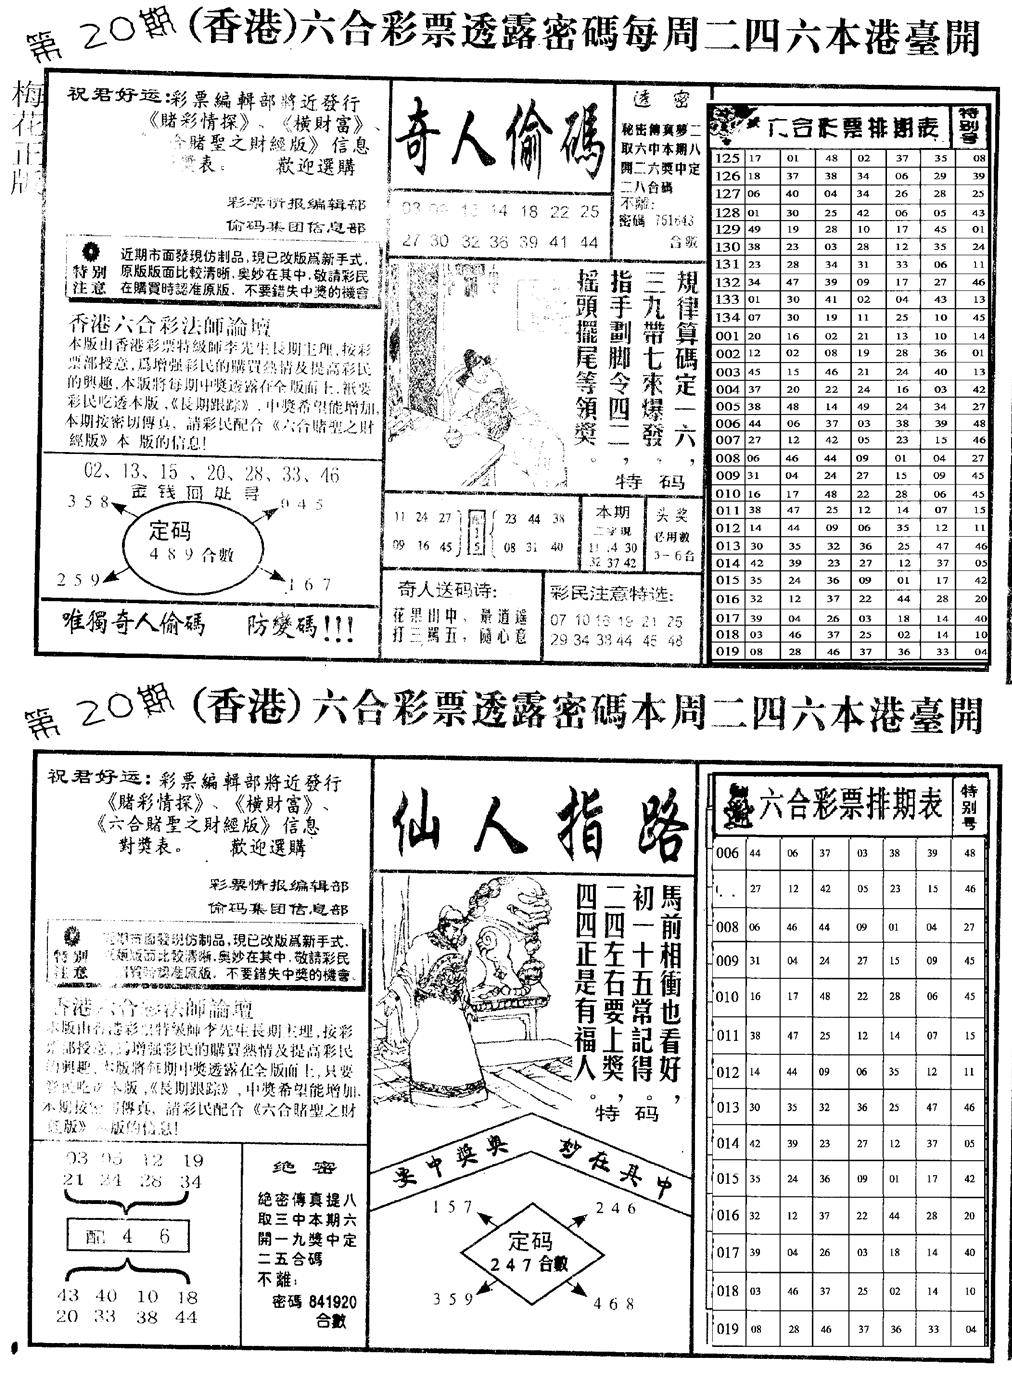 第20期 (香港)六合彩票透露密碼每周二四六本港臺開
梅花正版
祝君好运:彩票編輯部將近發行
《賭彩情探》、《橫財富》、
合賭聖之財經版》信息
獎表。 歡迎選購
彩票情报编辑部
偷码集团信息部
特别注意
近期市面發現仿制品,現已改版爲新手式.
原版版面比較清晰.奥妙在其中.敬請彩民
在購買時認准原版.不要錯失中獎的機會
香港六合彩法師論壇
本版由香港彩票特級師李先生長期主理,按彩
票部授意,爲增强彩民的購買熱情及提高彩民
的興趣.本版將每期中獎透露在全版面上,祇要
彩民吃透本版,《長期跟踪》,中獎希望能增加,
本期按密切傳真, 請彩民配合《六合賭聖之財
經版》本 版的信息!
02、13、15、20、28、33、46
358 945
定码
489合數
259 167
唯獨奇人偷碼 防變碼!!!
奇人偷碼
03 14 18 22 25
27 30 32 36 39 41 44
規律算碼定一六,
三九帶七來爆發
指手劃脚令四二,
摇頭擺尾等領獎。
特 码
11 24 27
09 16 45
23 44 38
08 31 40
本期
二字現
11.4 30
32 37 42
头奖
必用數
3-6合
奇人送码诗:
花果山中、最逍遥
打三羁五,隨心意
彩民注意特选:
07 10 16 19 21 25
29 34 38 44 45 48
透 密
秘密傳真夢二
取六中本期八
開二六獎中定
二八合碼
不離:
密碼 751643
合數
六合彩票排期表 特别号
125 17 01 48 02 37 35 08
126 18 37 38 34 06 29 39
127 06 40 04 34 26 28 25
128 01 30 25 42 06 05 43
129 49 19 28 10 17 45 01
130 38 23 03 28 12 35 24
131 23 28 34 31 33 06 11
132 34 47 39 09 17 27 46
133 01 30 41 02 04 43 13
134 07 30 19 11 25 10 45
001 20 16 02 21 13 10 14
002 12 02 08 19 28 36 01
003 45 15 46 21 24 40 13
004 37 20 22 24 16 03 42
005 38 48 14 49 24 34 27
006 44 06 37 03 38 39 48
007 27 12 42 05 23 15 46
008 06 46 44 09 01 04 27
009 31 04 24 27 15 09 45
010 16 17 48 22 28 06 45
011 38 47 25 12 14 07 15
012 14 44 09 06 35 12 11
013 30 35 32 36 25 47 46
014 42 39 23 27 12 37 05
015 35 24 36 09 01 17 42
016 32 12 37 22 44 28 20
017 39 04 26 03 18 14 40
018 03 46 37 25 02 14 10
019 08 28 46 37 36 33 04
第20期 (香港)六合彩票透露密碼本周二四六本港臺開
祝君好运:彩票編輯部將近發行
《賭彩情探》、《橫財富》、
《六合賭聖之財經版》信息
對獎表。 歡迎選購
彩票情报编辑部
偷码集团信息部
特别注意
近期市面發現仿制品,現已改版爲新手式.
原版版面比較清晰.奥妙在其中.敬請彩民
購買時認准原版.不要錯失中獎的機會.
香港六合彩法師論壇
本版由香港彩票特級師李先生長期主理,按彩
票部授意,爲增强彩民的購買熱情及提高彩民
的興趣.本版將每期中獎透露在全版面上,只要
彩民吃透本版,《長期跟踪》,中獎希望能增加.
本期按密切傳真, 請彩民配合《六合賭聖之財
經版》本版的信息!
03 05 12 19
21 24 28 34
配 4 6
43 40 10 18
20 33 38 44
绝 密
絶密傳真提八
取三中本期六
開一九獎中定
二五合碼
不離:
密碼 841920
合數
仙人指路
馬前相衝也看好,
初一十五常記得。
二四左右要上獎,
四四正是有福人。
特 码
要中獎奥 妙在其中
157 246
定码
247合數
359 468
六合彩票排期表 特别号
006 44 06 37 03 38 39 48
27 12 42 05 23 15 46
008 06 46 44 09 01 04 27
009 31 04 24 27 15 09 45
010 16 17 48 22 28 06 45
011 38 47 25 12 14 07 15
012 14 44 09 06 35 12 11
013 30 35 32 36 25 47 46
014 42 39 23 27 12 37 05
015 35 24 36 09 01 17 42
016 32 12 37 22 44 28 20
017 39 04 26 03 18 14 40
018 03 46 37 25 02 14 10
019 08 28 46 37 36 33 04